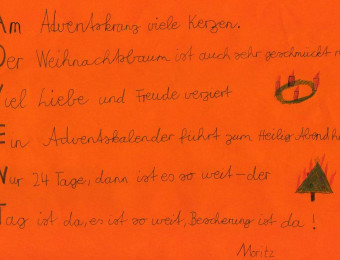 Am Adventskranz viele Kerzen.
Der Weihnachtsbaum ist auch sehr geschmückt
Viel Liebe und Freude verziert
Ein Adventskalender führt zum Heilig Abend
Nur 24 Tage, dann ist es so weit – der
Tag ist da, es ist so weit, Bescherung ist da!
Moritz